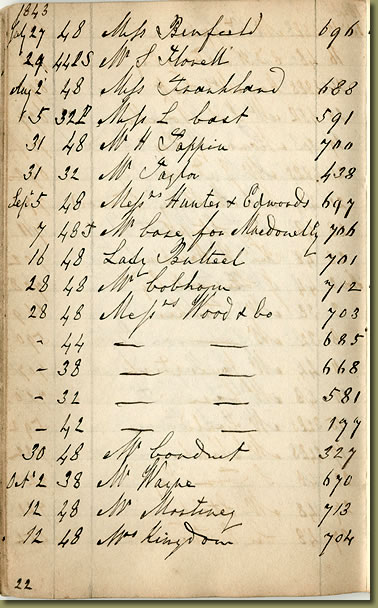 1843
July 27 48 Miss Benfield 696
29 44 LS Mr S Flovell
Aug 2 48 Miss Frankland 688
5 32 Miss L Cast 591
31 48 Mr H Tappin 700
31 32 Mr Taylor 438
Sept 5 48 Messrs Hunter & Edwards 697
7 48 Mr Case for 706
16 48 Lady Bulteel 701
28 48 Mr Cobham 712
28 48 Messrs Wood & Co 703
- 44 — — 685
- 38 — — 668
- 32 — — 581
- 42 — — 177
30 48 Mr Conduit 327
Oct 2 38 Mr Wayne 670
12 28 Mr 713
12 48 Mrs Kingdom 704
22